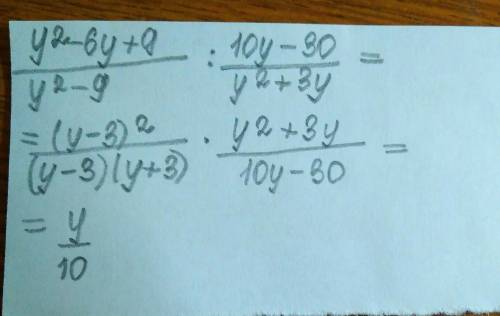 y²-6y+9 / y²-9 : 10y-30 / y²+3y =
= (y-3)² / (y-3)(y+3) · y²+3y / 10y-30 =
= y / 10